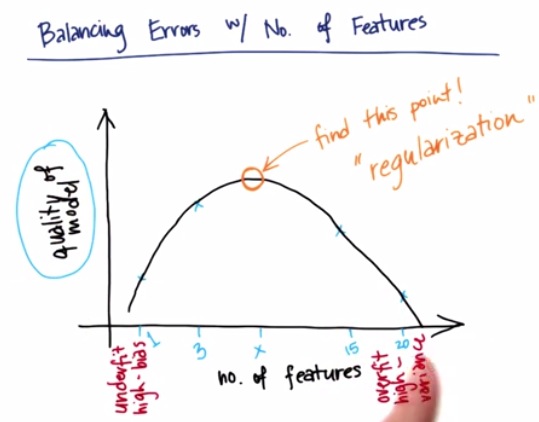 Balancing Errors w/ No. of Features
find this point!
"regularization"
quality of
model
1 3 x 15 20
no. of features
underfit
high-bias
overfit
high-
variance